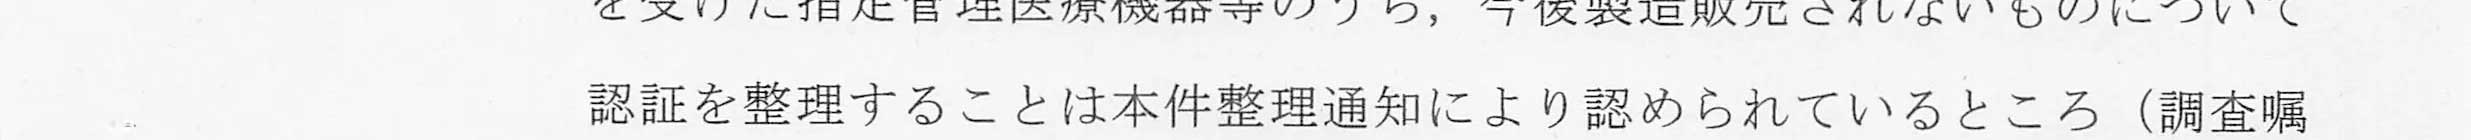 を受けた指定管理医療機器等のうち，今後製造販売されないものについて
認証を整理することは本件整理通知により認められているところ（調査嘱